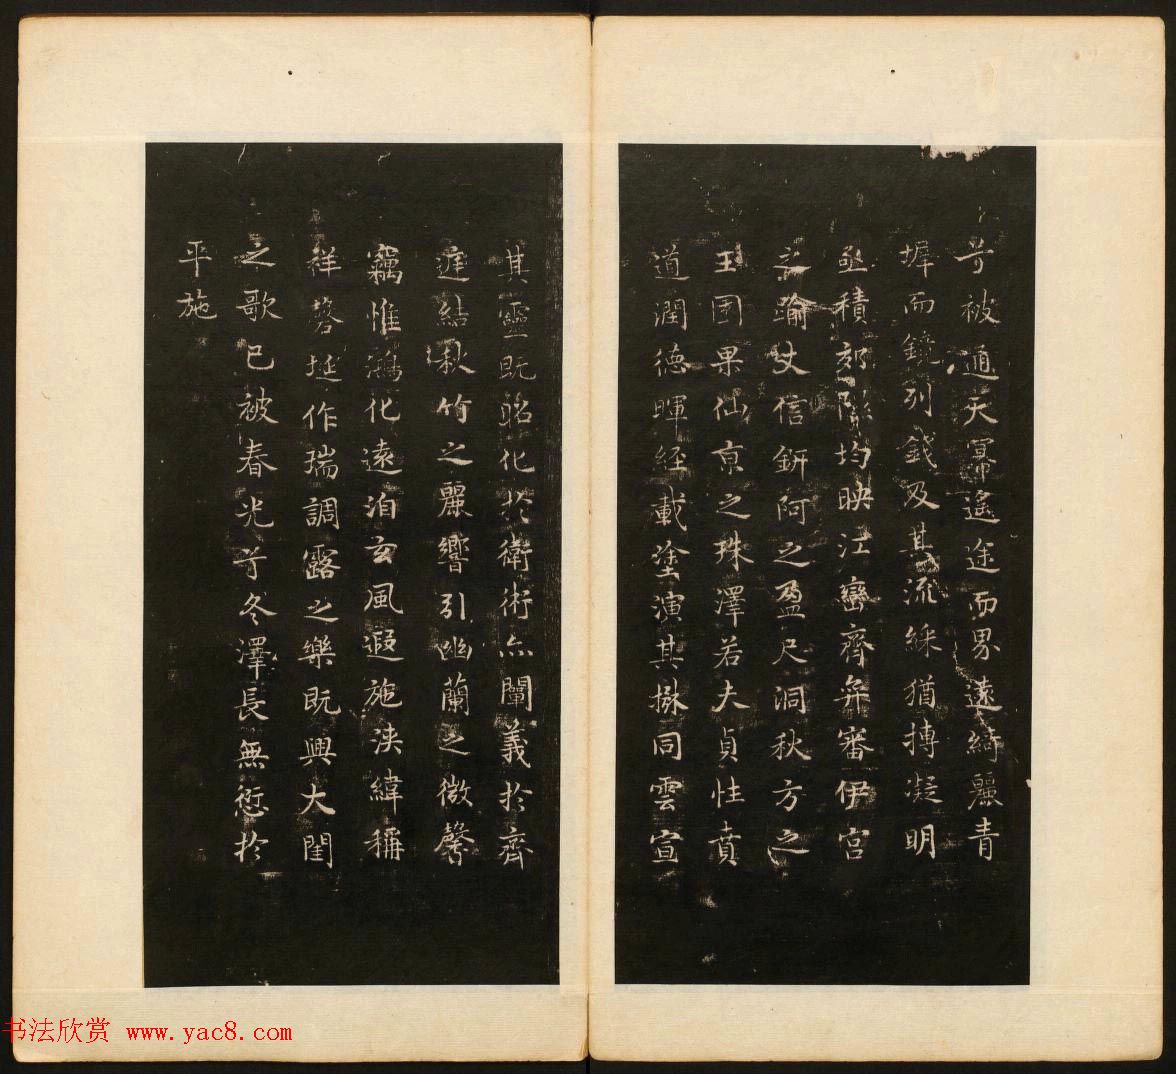 兮被通天冪遙途而界遠綺麗青
墀而鏡列錢及其流綵猶摶凝明
亟積郊隙均映江巒齊弁審伊宮
之踰丈信鈃阿之盈尺洞秋方之
玉圃果仙京之珠澤若夫貞性賁
道潤德暉經載塗演其揪同雲宣
其靈既昭化於衛術亦闡義於齊
遊結秋竹之麗響引幽蘭之微馨
竊惟鴻化遠洎玄風遐施浹緯稱
祥磐挻作瑞調露之樂既興大閏
之歌已被春光兮冬澤長無愆於
平施
书法欣赏 www.yac8.com